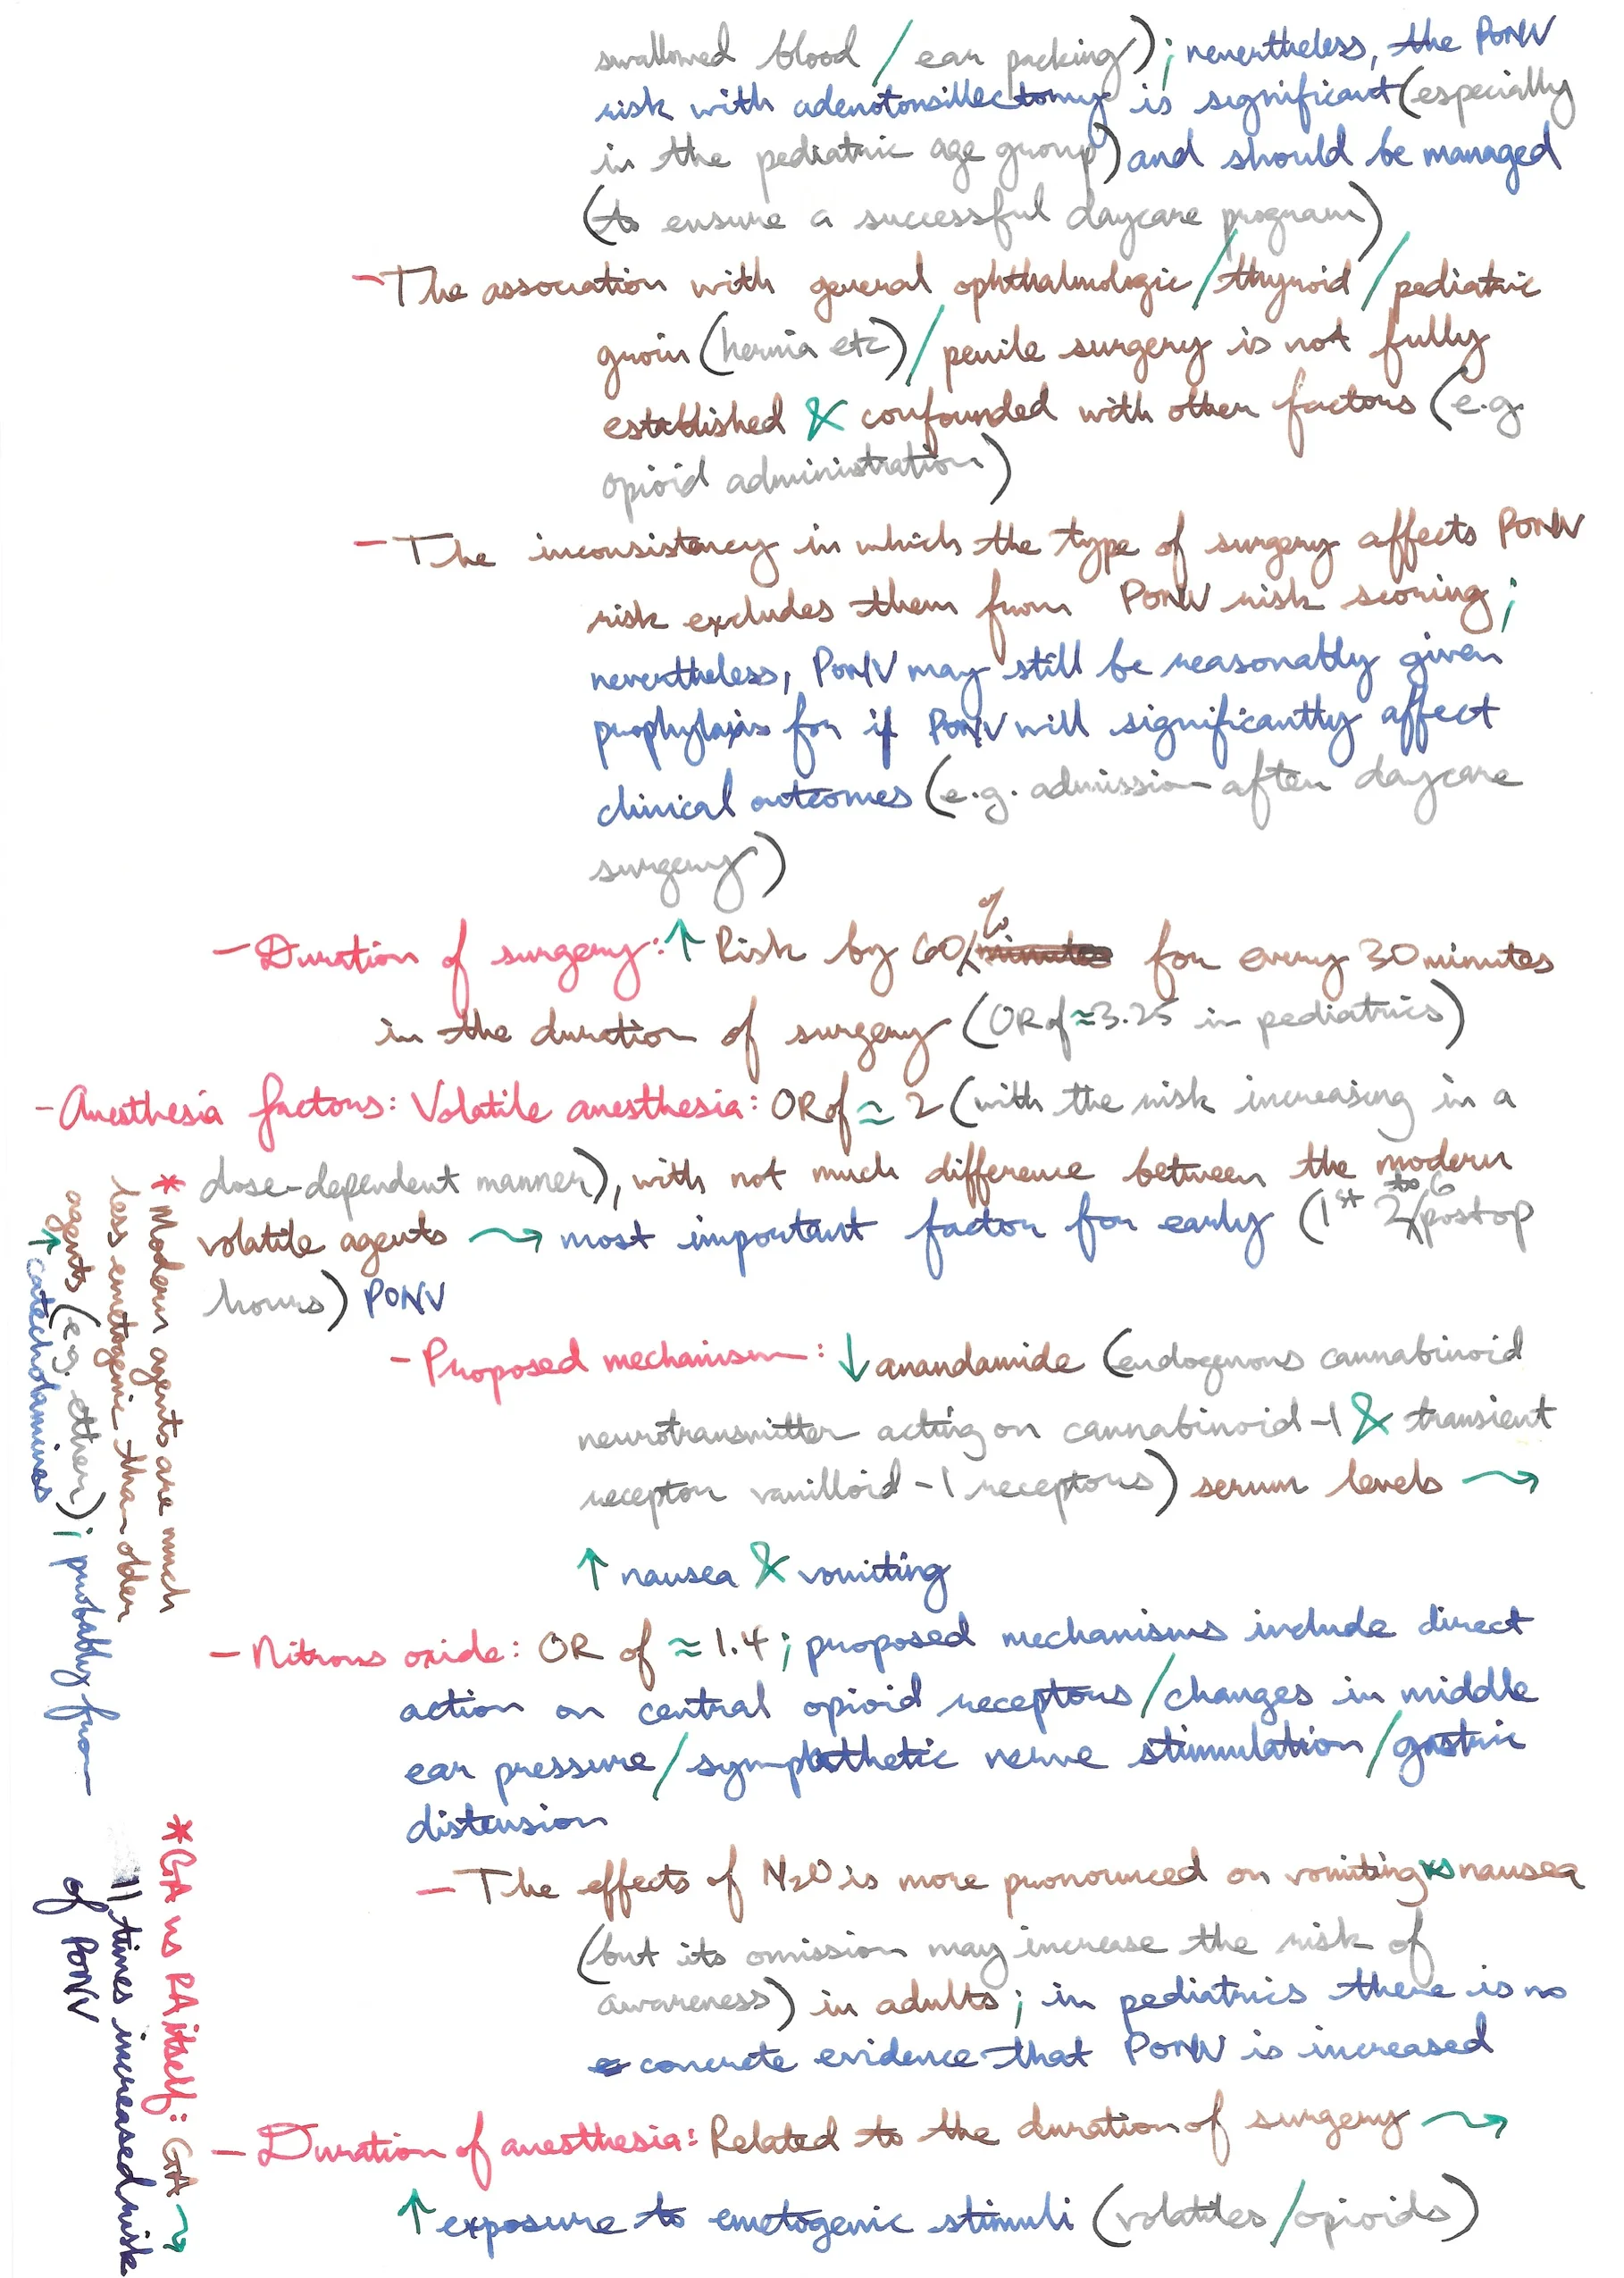 swallowed blood / ear packing); nevertheless, the PONV
risk with adenotonsillectomy is significant (especially
in the pediatric age group) and should be managed
(to ensure a successful daycare program)
- The association with general ophthalmologic / thyroid / pediatric
groin (hernia etc) / penile surgery is not fully
established & confounded with other factors (e.g.
opioid administration)
- The inconsistency in which the type of surgery affects PONV
risk excludes them from PONV risk scoring;
nevertheless, PONV may still be reasonably given
prophylaxis for if PONV will significantly affect
clinical outcomes (e.g. admission after daycare
surgery)
- Duration of surgery: ↑ Risk by 60% for every 30 minutes
in the duration of surgery (OR of ≈ 3.25 in pediatrics)
- Anesthesia factors: Volatile anesthesia: OR of ≈ 2 (with the risk increasing in a
dose-dependent manner), with not much difference between the modern
volatile agents → most important factor for early (1st 2 to 6 postop
hours) PONV
- Proposed mechanism: ↓ anandamide (endogenous cannabinoid
neurotransmitter acting on cannabinoid-1 & transient
receptor vanilloid-1 receptors) serum levels →
↑ nausea & vomiting
- Nitrous oxide: OR of ≈ 1.4; proposed mechanisms include direct
action on central opioid receptors / changes in middle
ear pressure / sympathetic nerve stimulation / gastric
distension
- The effects of N2O is more pronounced on vomiting vs nausea
(but its omission may increase the risk of
awareness) in adults; in pediatrics there is no
concrete evidence that PONV is increased
- Duration of anesthesia: Related to the duration of surgery →
↑ exposure to emetogenic stimuli (volatiles / opioids)
* Modern agents are much
less emetogenic than older
agents (e.g. ether); probably from
↑ catecholamines
* GA vs RA itself: GA →
11 times increased risk
of PONV